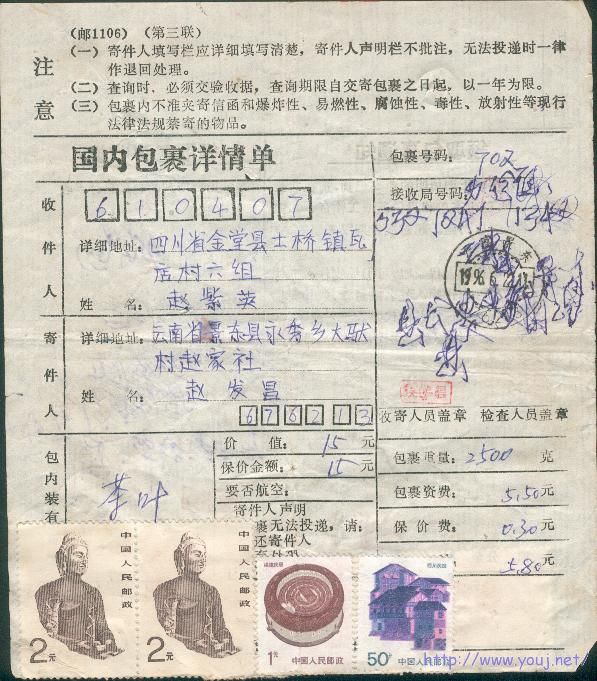 注意
(邮1106) (第三联)
(一) 寄件人填写栏应详细填写清楚，寄件人声明栏不批注，无法投递时一律
作退回处理。
(二) 查询时、必须交验收据，查询期限自交寄包裹之日起，以一年为限。
(三) 包裹内不准夹寄信函和爆炸性、易燃性、腐蚀性、毒性、放射性等现行
法律法规禁寄的物品。
国内包裹详情单
包裹号码： 702
接收局号码：
收件人
610407
详细地址： 四川省金堂县土桥镇瓦
店村六组
姓 名： 赵紫英
寄件人
详细地址： 云南省景东县永秀乡大
村赵家社
姓 名： 赵发昌
676213
收寄人员盖章 检查人员盖章
1996
包内装有
茶叶
价 值： 15 元
保价金额： 15 元
要否航空：
寄件人声明
裹无法投递，请：
还寄件人
包裹重量： 2500 克
包裹资费： 5.50 元
保 价 费： 0.30 元
5.80 元
中国人民邮政
2元
中国人民邮政
2元
1元
中国人民邮政
50分
中国人民邮政
http://www.youj.net/